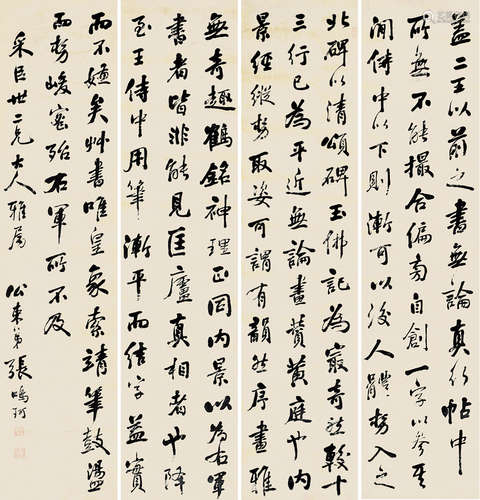 蓋二王以前之書無論真行帖中
所無不能撮合偏旁自創一字以參其
間侍中以下則漸可以後人體勢入之
北碑以清頌碑玉佛記為最奇然較十
三行已為平近無論畫贊黃庭也內
景經縱勢取姿可謂有韻然序畫雅
無奇趣鶴銘神理正同內景以為右軍
書者皆非能見匡廬真相者也降
至王侍中用筆漸平而結字益實
而不煩矣艸書唯皇象索靖筆鼓盪
而勢峻密殆右軍所不及
采臣世二兄大人雅屬
公束弟張鳴珂